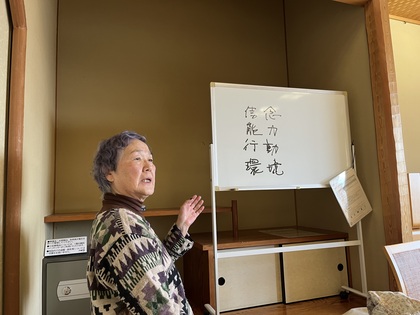 信念
能力
行動
環境